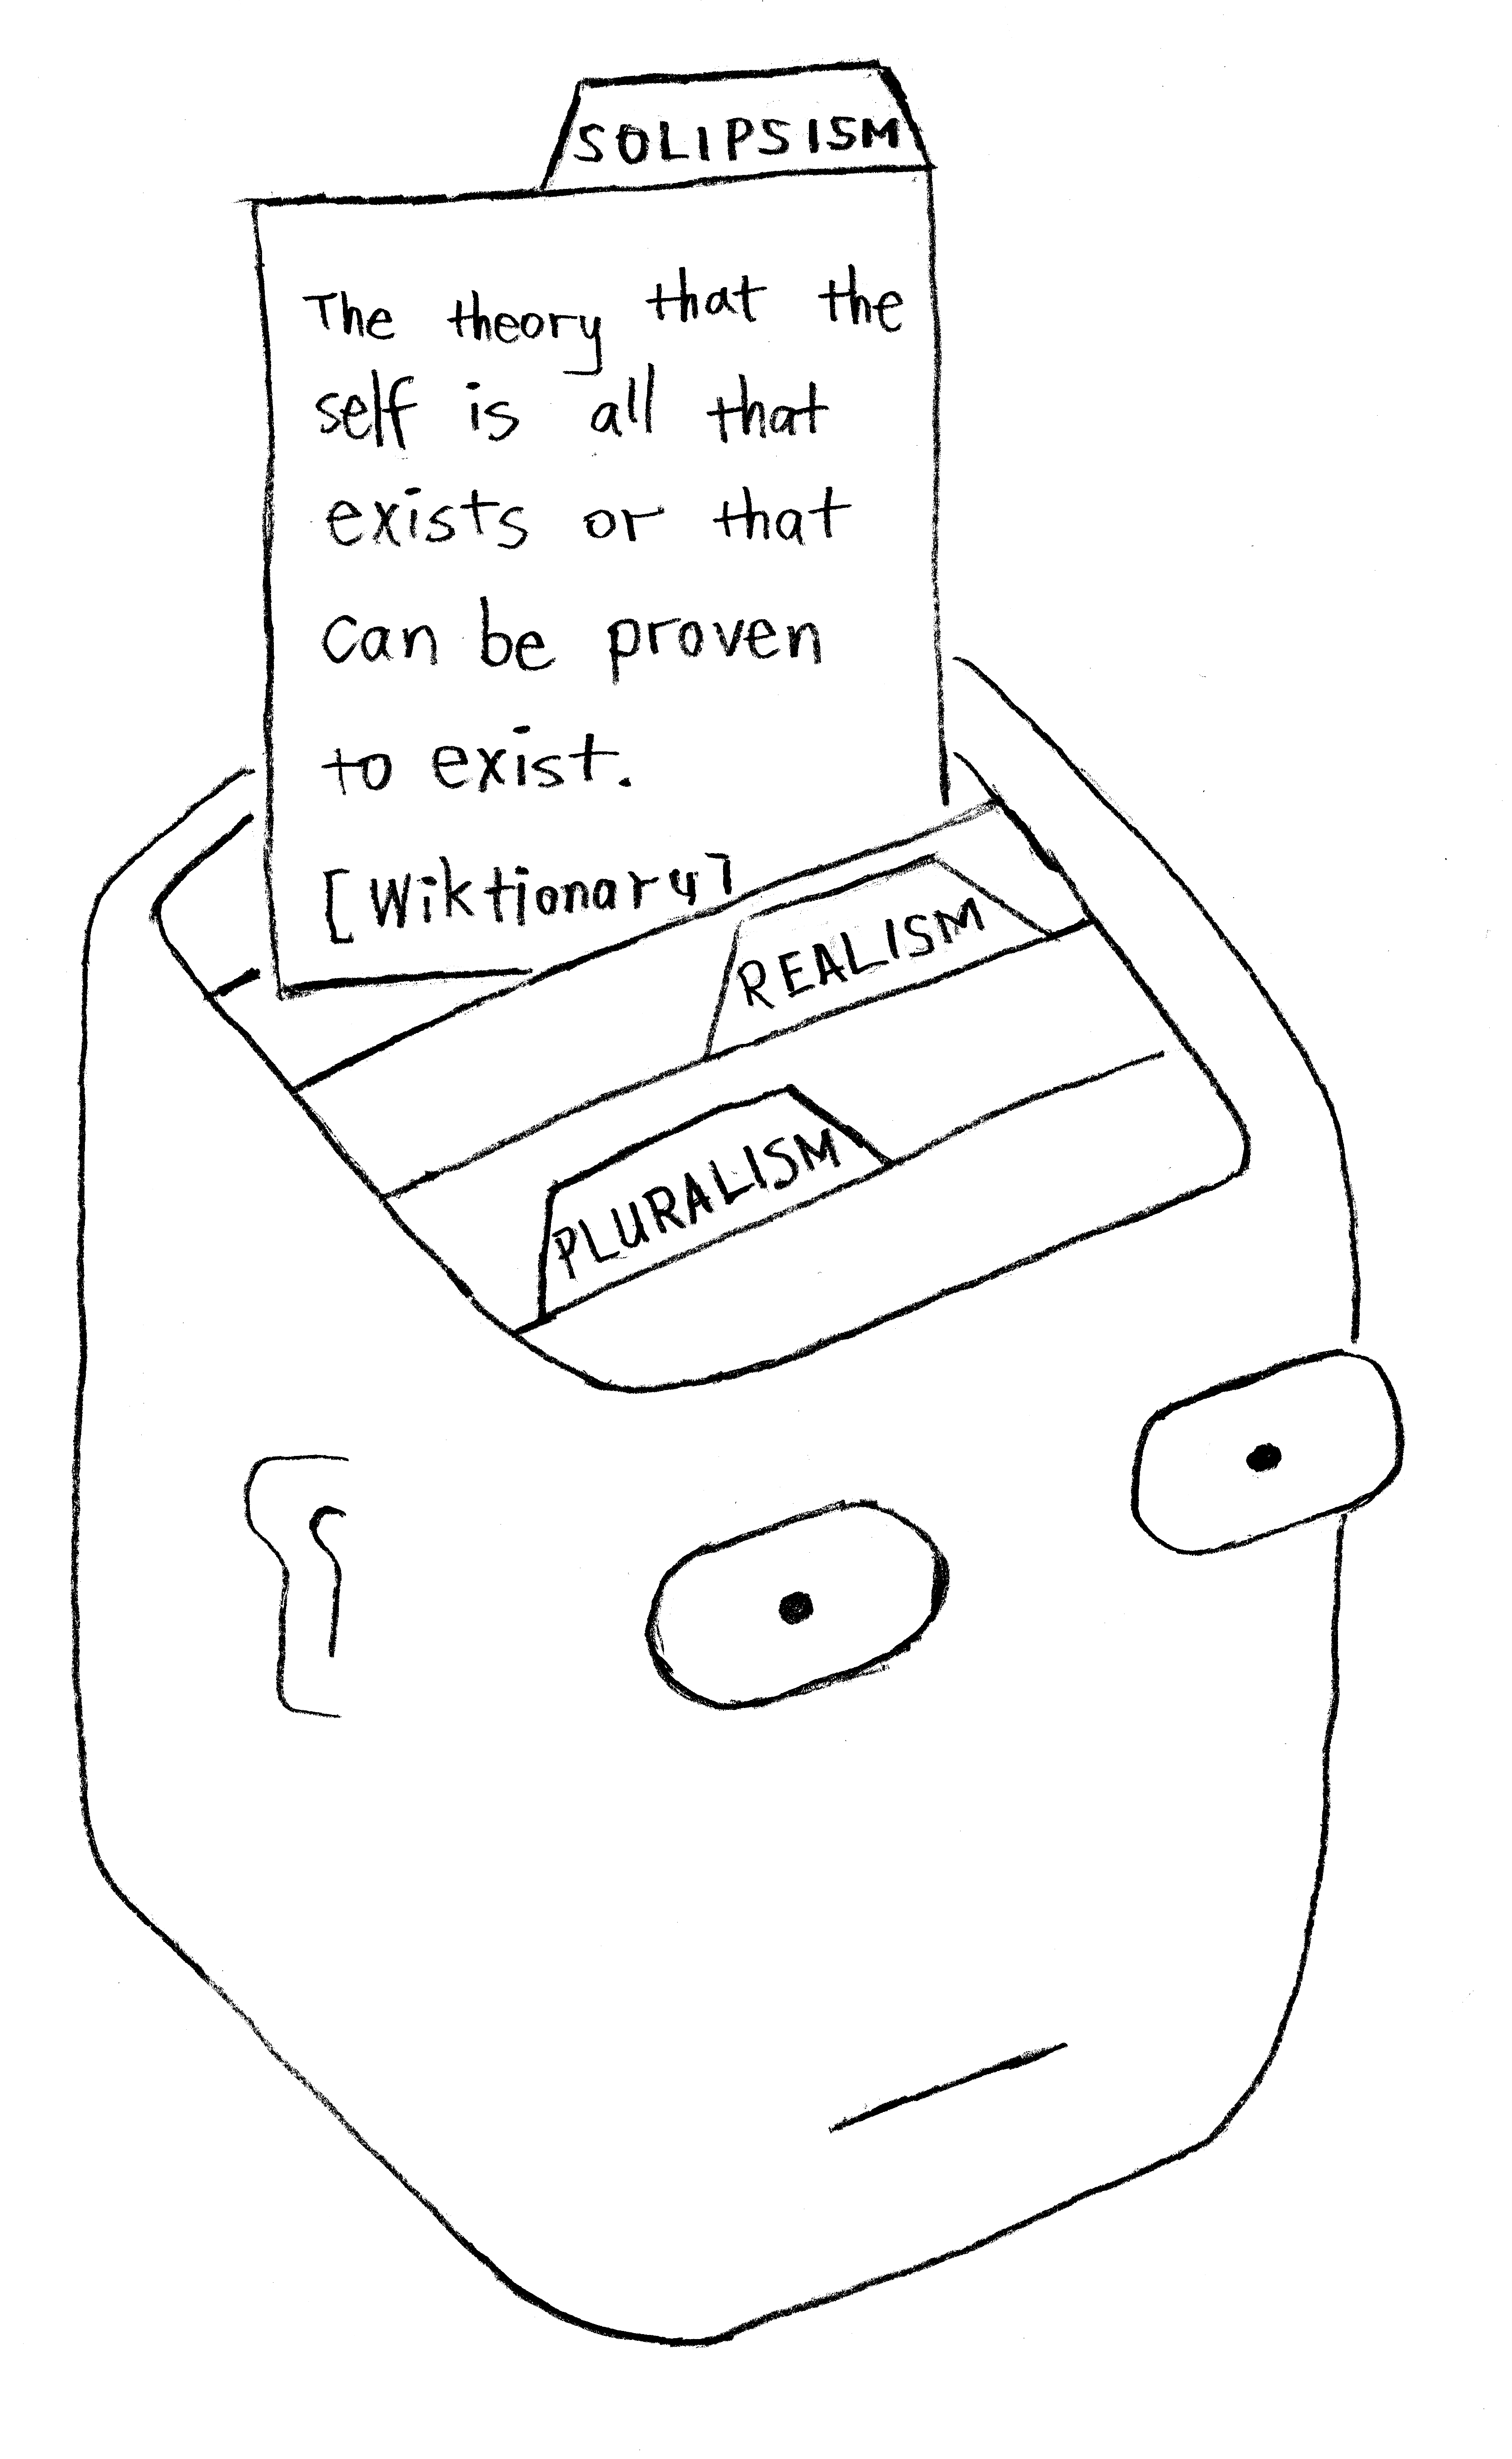 SOLIPSISM
The theory that the
self is all that
exists or that
can be proven
to exist.
[Wiktionary]
REALISM
PLURALISM